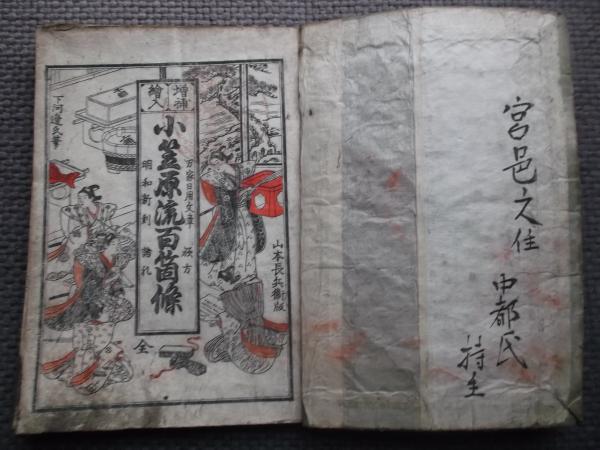 宮邑之住
中都氏
持主
山本長兵衛版
増補
繪入
小笠原流百箇條
万家日用文章
躾方
明和新刻
諸礼
全
下河邊文華